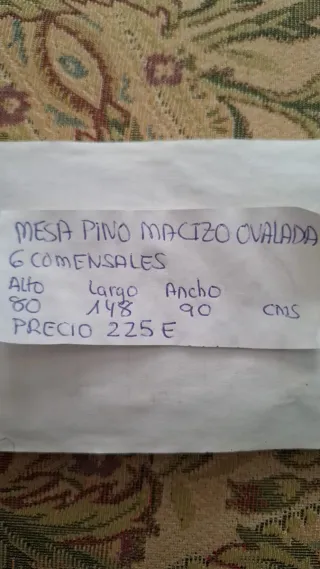 MESA PINO MACIZO OVALADA
6 COMENSALES
Alto Largo Ancho
80 148 90 CMS
PRECIO 225 E